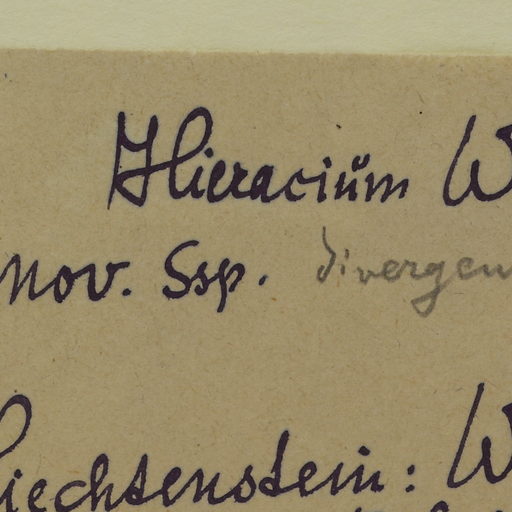 Hieraciŭm W
nov. Ssp. divergen
Liechtenstein: W